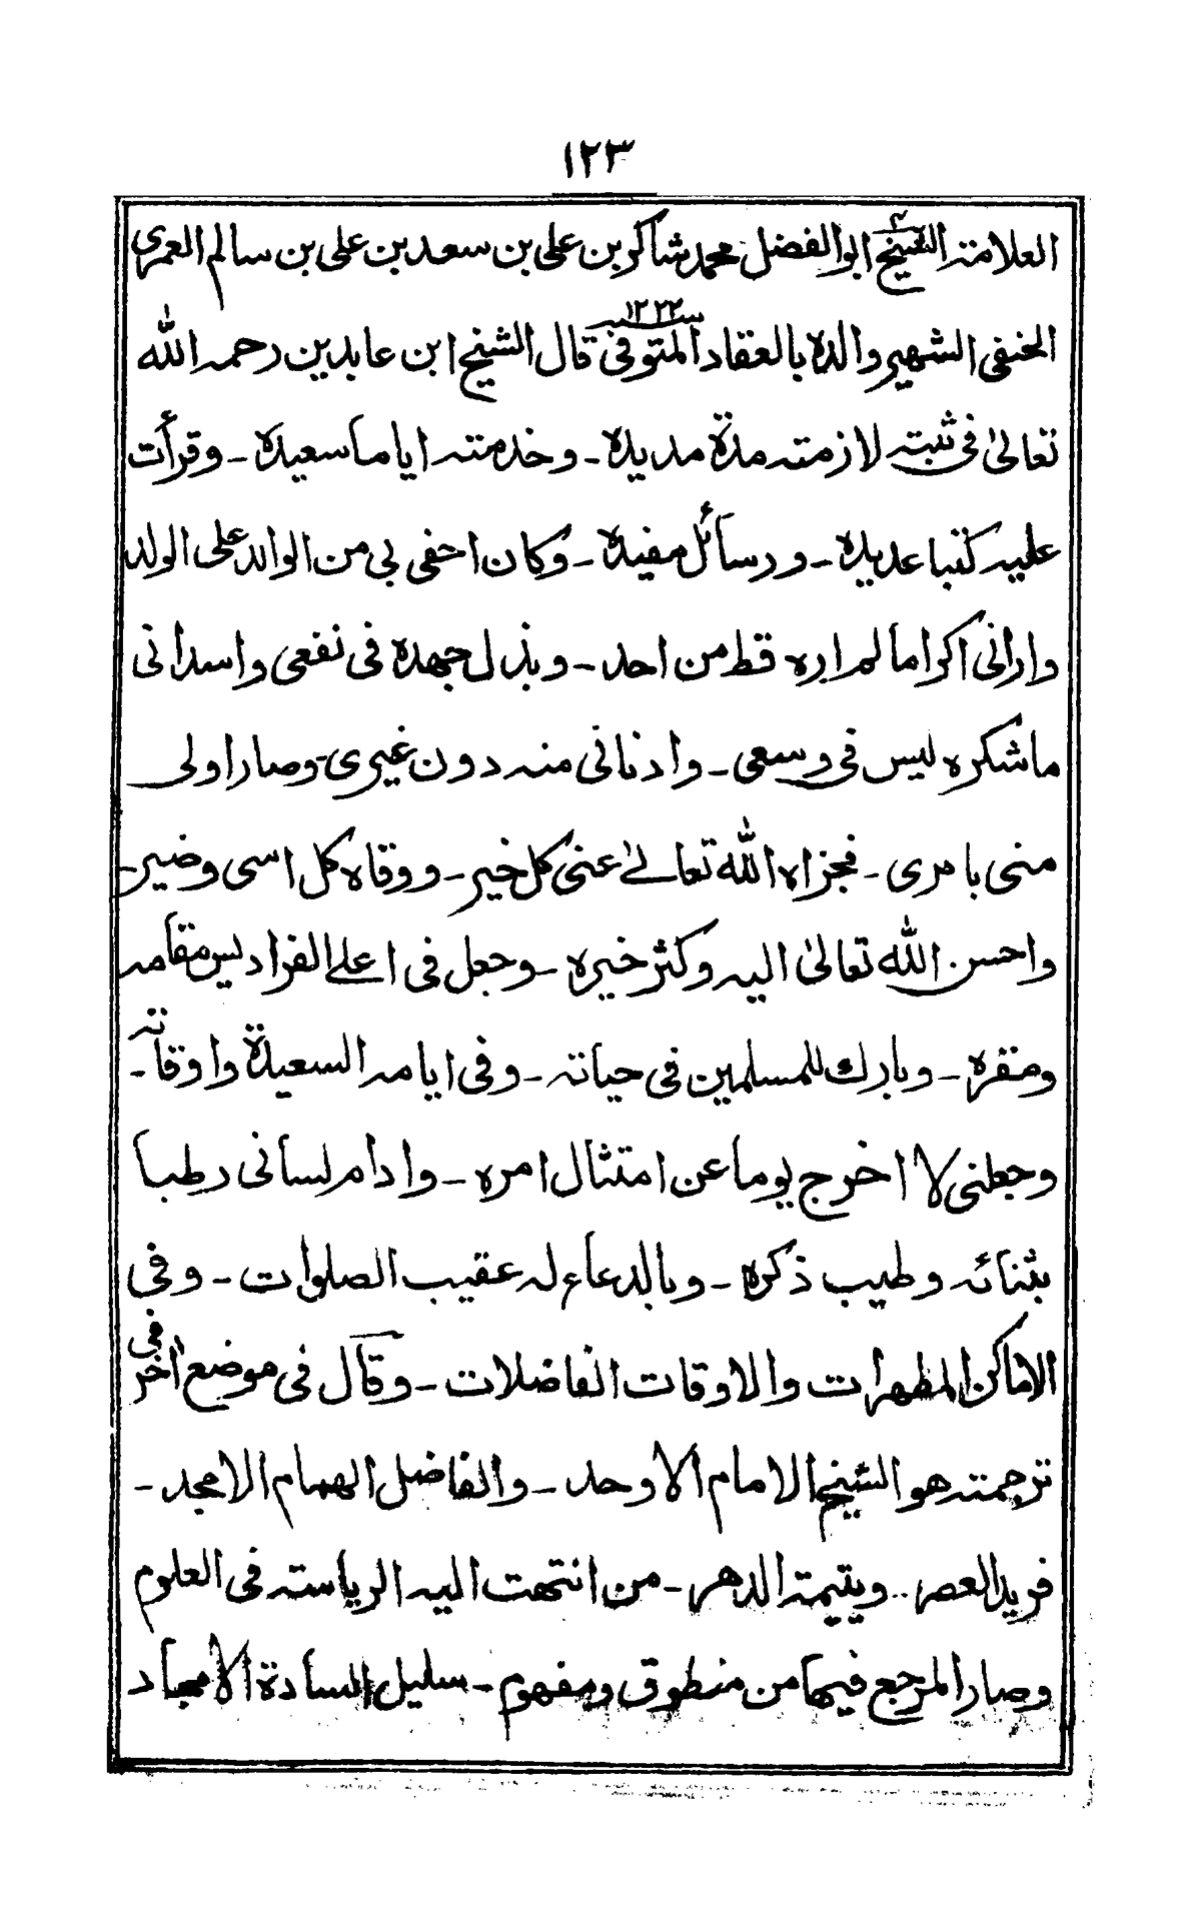 ١٢٣
العلامة الشيخ ابو الفضل محمد شاكر بن على بن سعد بن على بن سالم العمرى
الحنفى الشهير والده بالعقاد المتوفى سنة ١٢٢٢ قال الشيخ ابن عابدين رحمه الله
تعالىٰ فى ثبته لازمته مدة مديدة ـ وخدمته اياما سعيدة ـ وقرأت
عليه كتبا عديدة ـ ورسائل مفيدة ـ وكان احفى بى من الوالد على الولد
وارانى اكراما لم اره قط من احد ـ وبذل جهده فى نفعى واسدانى
ما شكره ليس فى وسعى ـ وادنانى منه دون غيرى ـ وصار اولى
منى بامرى ـ فجزاه الله تعالىٰ عنى كل خير ـ ووقاه كل اسى وضير ـ
واحسن الله تعالىٰ اليه وكثر خيره ـ وجعل فى اعلے الفراديس مقامه
ومقره ـ وبارك للمسلمين فى حياته ـ وفى ايامه السعيدة واوقاته ـ
وجعلنى لا اخرج يوما عن امتثال امره ـ وادام لسانى رطبا
بثنائه وطيب ذكره ـ وبالدعاء له عقيب الصلوات ـ وفى
الاماكن المطهرات والاوقات الفاضلات ـ وقال فى موضع اخر فى
ترجمته هو الشيخ الامام الاوحد ـ والفاضل الهمام الامجد ـ
فريد العصر ـ ويتيمة الدهر ـ من انتهت اليه الرياسة فى العلوم
وصار المرجع فيها من منطوق ومفهوم ـ سليل السادة الامجاد